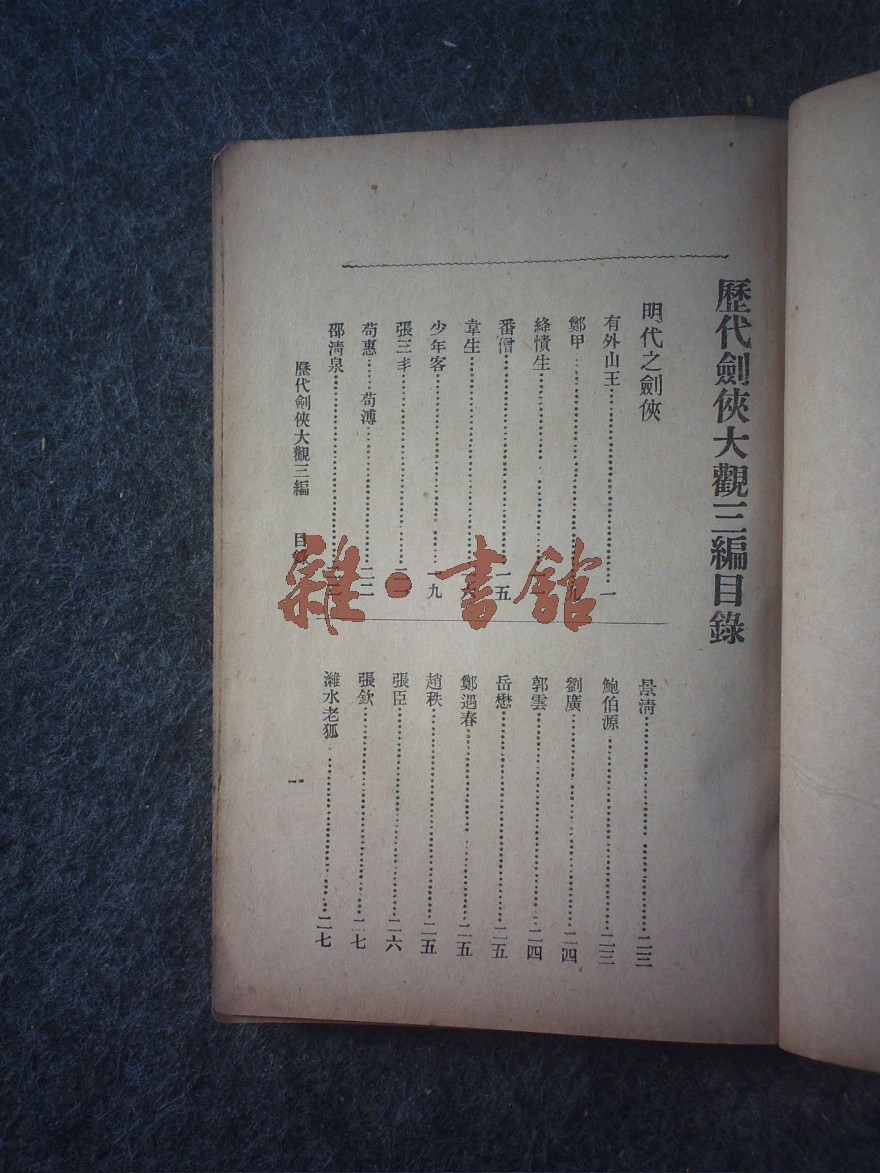 歷代劍俠大觀三編目錄
明代之劍俠
有外山王……一
鄭甲……九
絳幘生……
番僧……一五
韋生……一六
少年客……一九
張三丰……二一
苟惠……苟溥……二二
邵淸泉……二二
景淸……二三
鮑伯源……二三
劉廣……二四
郭雲……二四
岳懋……二五
鄭遇春……二五
趙秩……二五
張臣……二六
張欽……二七
濰水老狐……二七
歷代劍俠大觀三編 目錄 一
雜·書館